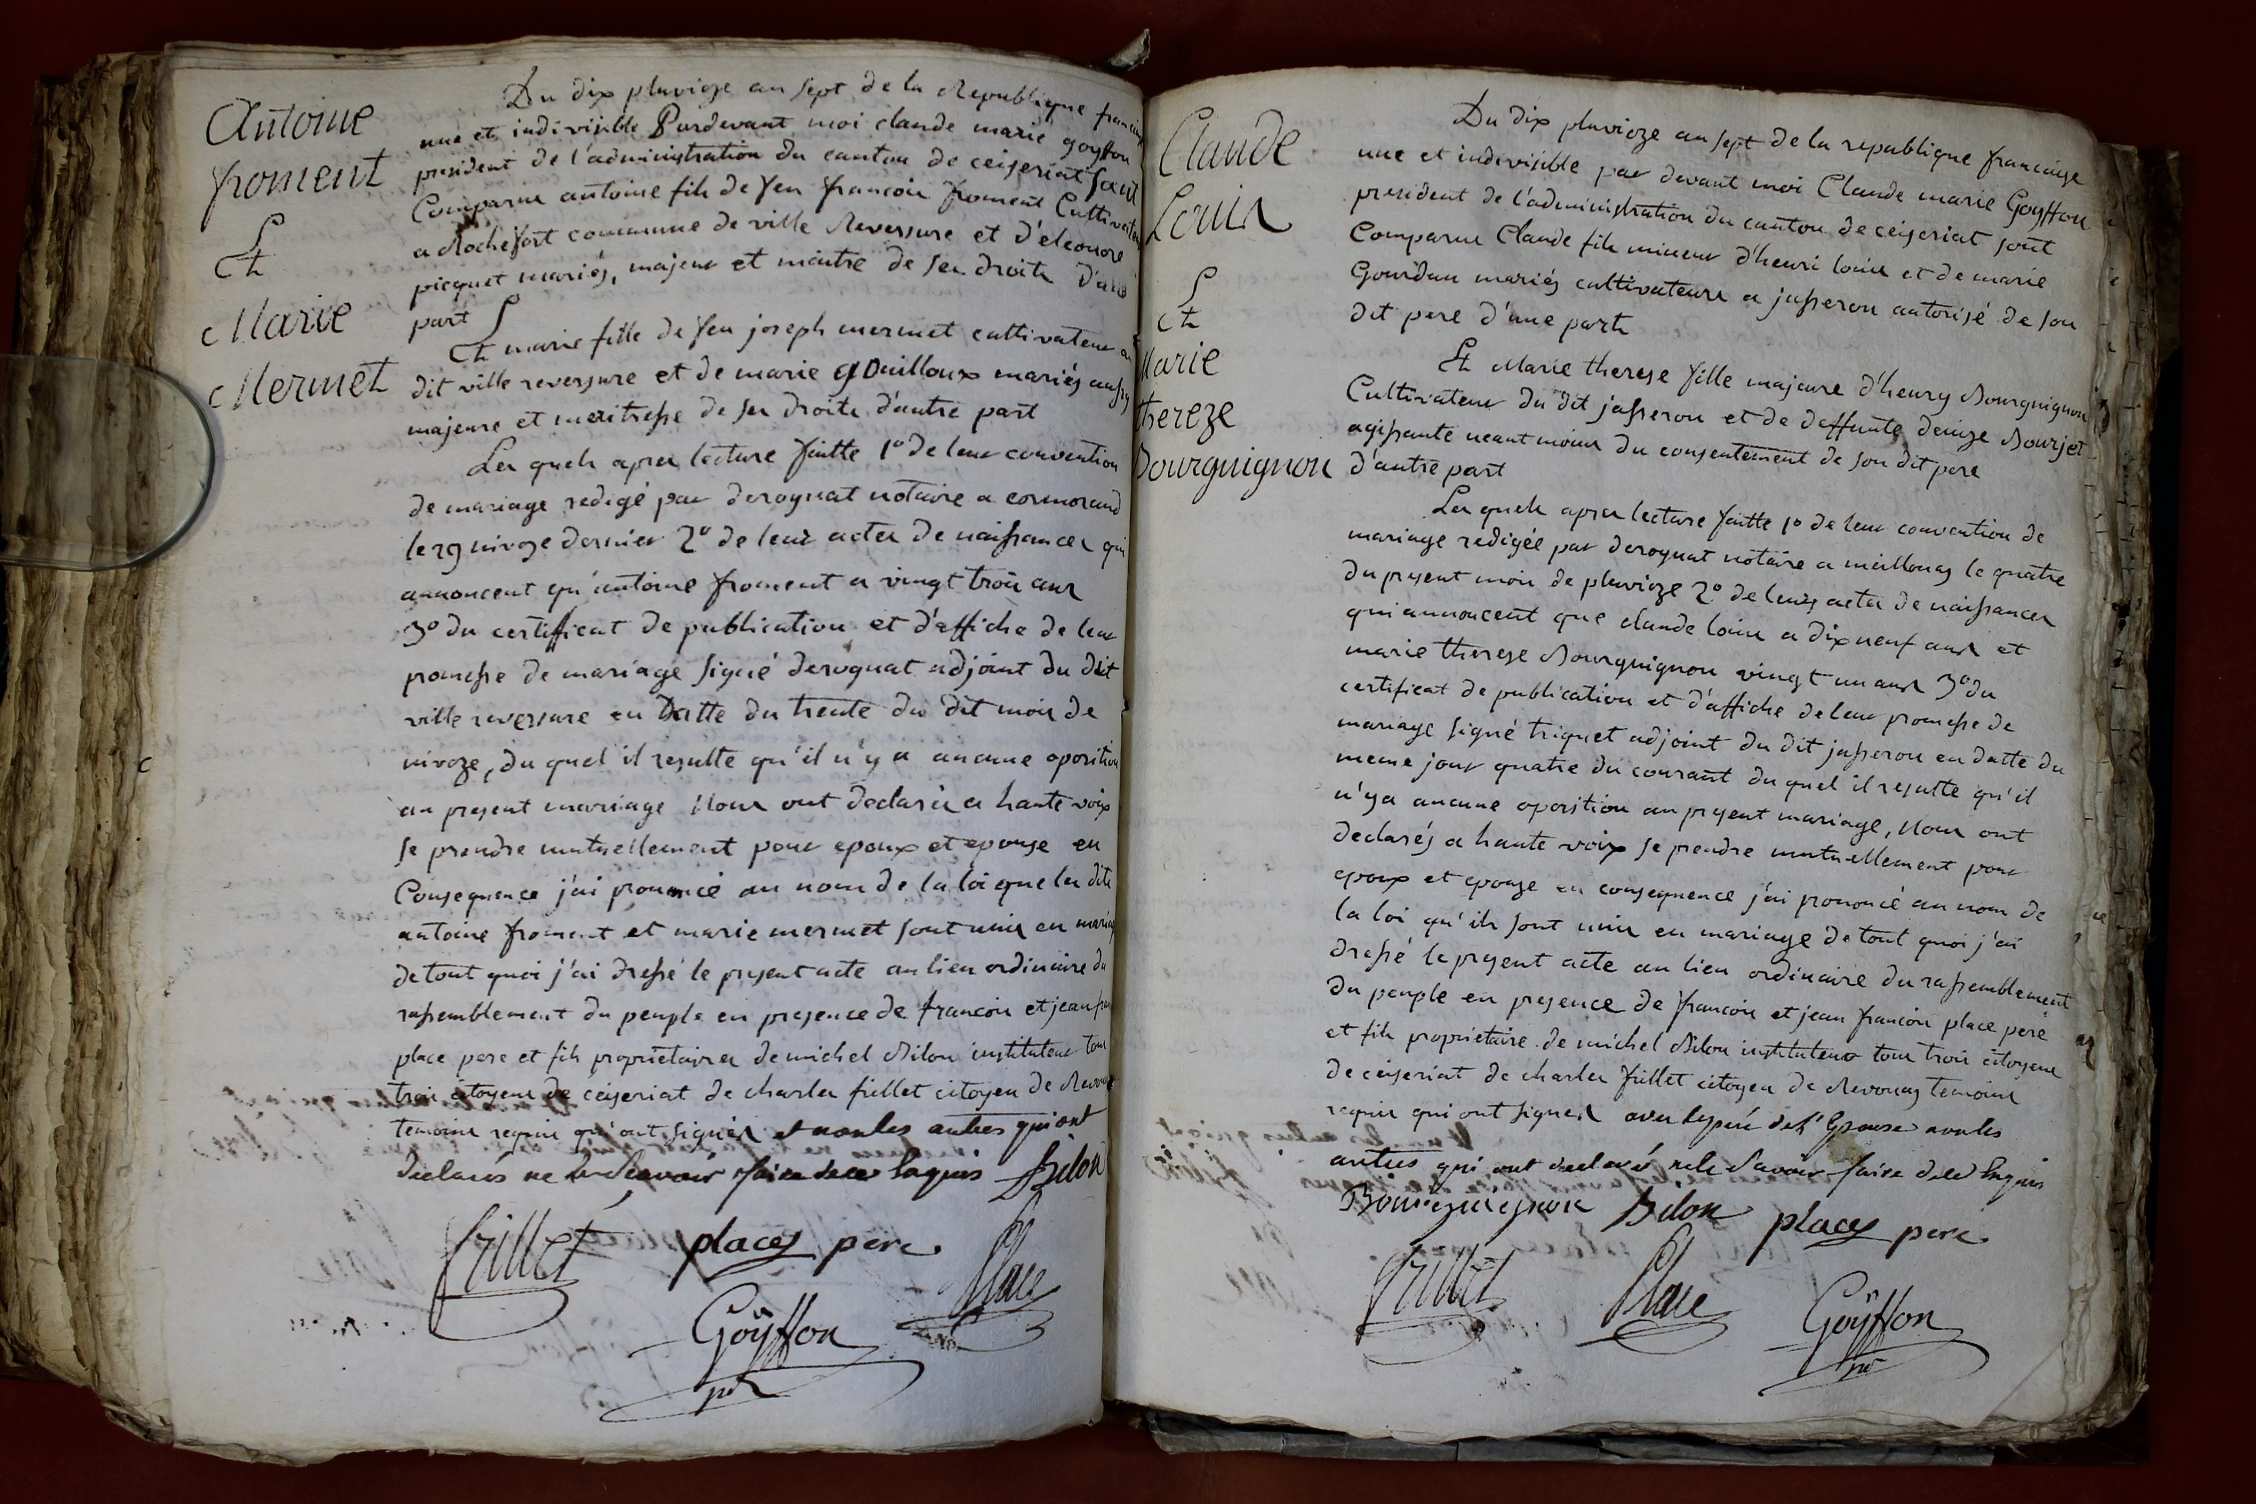 Antoine
froment
Et
Marie
Mermet
Du dix pluvioze an sept de la Republique francaise
une et indivisible Pardevant moi claude marie goyffon
president de l'administration du canton de ceiseriat sont
Comparus antoine fils de feu francois froment Cultivateur
a Rochefort commune de ville Reversure et d'eleonore
picquet mariés, majeur et maitre de ses droits d'une
part
Et marie fille de feu joseph mermet cultivateur au
dit ville reversure et de marie gouilloux mariés aussy
majeure et maitresse de ses droits d'autre part
Les quels apres lecture faitte 1º de leur convention
de mariage redigé par deroguat notaire a cormorand
le 29 nivoze dernier 2º de leurs actes de naissances qui
annoncent qu'antoine froment a vingt trois ans
3º du certificat de publication et d'affiche de leur
promesse de mariage signé deroguat adjoint du dit
ville reversure en datte du trente du dit mois de
nivoze, du quel il resulte qu'il n'y a aucune oposition
au present mariage Nous ont declarés a haute voix
se prendre mutuellement pour epoux et epouse en
Consequence j'ai prononcé au nom de la loi que les dits
antoine froment et marie mermet sont unis en mariage
de tout quoi j'ai dressé le present acte au lieu ordinaire du
rassemblement du peuple en presence de francois et jean
place pere et fils proprietaires de michel Bilon instituteur tous
trois citoyens de ceyseriat de charles fillet citoyen de Revonas
temoins requis qui ont signés et non les autres qui ont
declarés ne le scavoir faire de ce Enquis Bilon
places pere
Place
Goÿffon
Claude
Louis
Et
Marie
thereze
Bourguignon
Du dix pluvioze an sept de la republique francaise
une et indivisible par devant moi Claude marie Goyffon
president de l'administration du canton de ceiseriat sont
Comparus Claude fils mineur d'henri louis et de marie
Gourdan mariés cultivateurs a jasseron autorisé de son
dit pere d'une part
Et Marie therese fille majeure d'henry Bourguignon
Cultivateur du dit jasseron et de deffunte denize Bourjet
agissante neantmoins du consentement de son dit pere
d'autre part
Les quels apres lecture faitte 1º de leur convention de
mariage redigée par deroguat notaire a meillonas le quatre
du present mois de pluvioze 2º de leurs actes de naissances
qui annoncent que claude louis a dix neuf ans et
marie therese Bourguignon vingt un ans 3º du
certificat de publication et d'affiche de leur promesse de
mariage signé triquet adjoint du dit jasseron en datte du
meme jour quatre du courant du quel il resulte qu'il
n'y a aucune oposition au present mariage, Nous ont
declarés a haute voix se prendre mutuellement pour
epoux et epouse en consequence j'ai prononcé au nom de
la loi qu'ils sont unis en mariage de tout quoi j'ai
dressé le present acte au lieu ordinaire du rassemblement
du peuple en presence de francois et jean francois place pere
et fils proprietaire de michel Bilon instituteur tous trois citoyens
de ceiseriat de charles fillet citoyen de Revonas temoins
requis qui ont signés avec le pere de l'Epouse non les
autres qui ont declaré ne le Savoir faire de ce Enquis
Bourguignon Bilon places pere
Place
Goÿffon